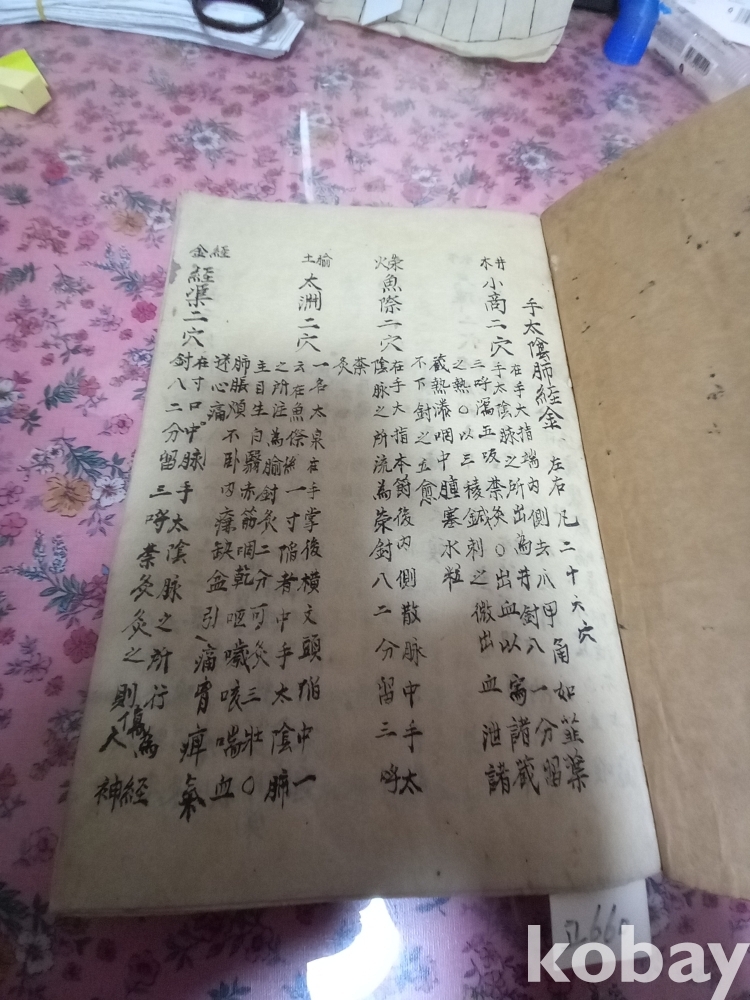 手太陰肺經金 左右凡二十六穴
井木
小商二穴
在手大指端內側去爪甲角如韮葉
手太陰脉之所出為井針入一分留
三呼瀉五吸禁灸○出血以瀉諸藏
之熱○以三稜鍼刺之微出血泄諸
藏熱湊咽中腫塞水粒
不下針之立愈
火
魚際二穴
在手大指本節後內側散脉中手太
陰脉之所流為荣針入二分留三呼
禁灸
土
太渊二穴
一名太泉在手掌後橫文頭陷中一
云在魚際後一寸陷者中手太陰肺
之所注為腧針灸二分可灸三壯○
主目生白翳赤筋咽乾嘔噦咳喘血
肺脹煩不卧內痛缺盆引痛胃痺氣
逆心痛
經金
經渠二穴
在寸口中脉手太陰脉之所行為經
針入二分留三呼禁灸灸之則傷人神
kobay